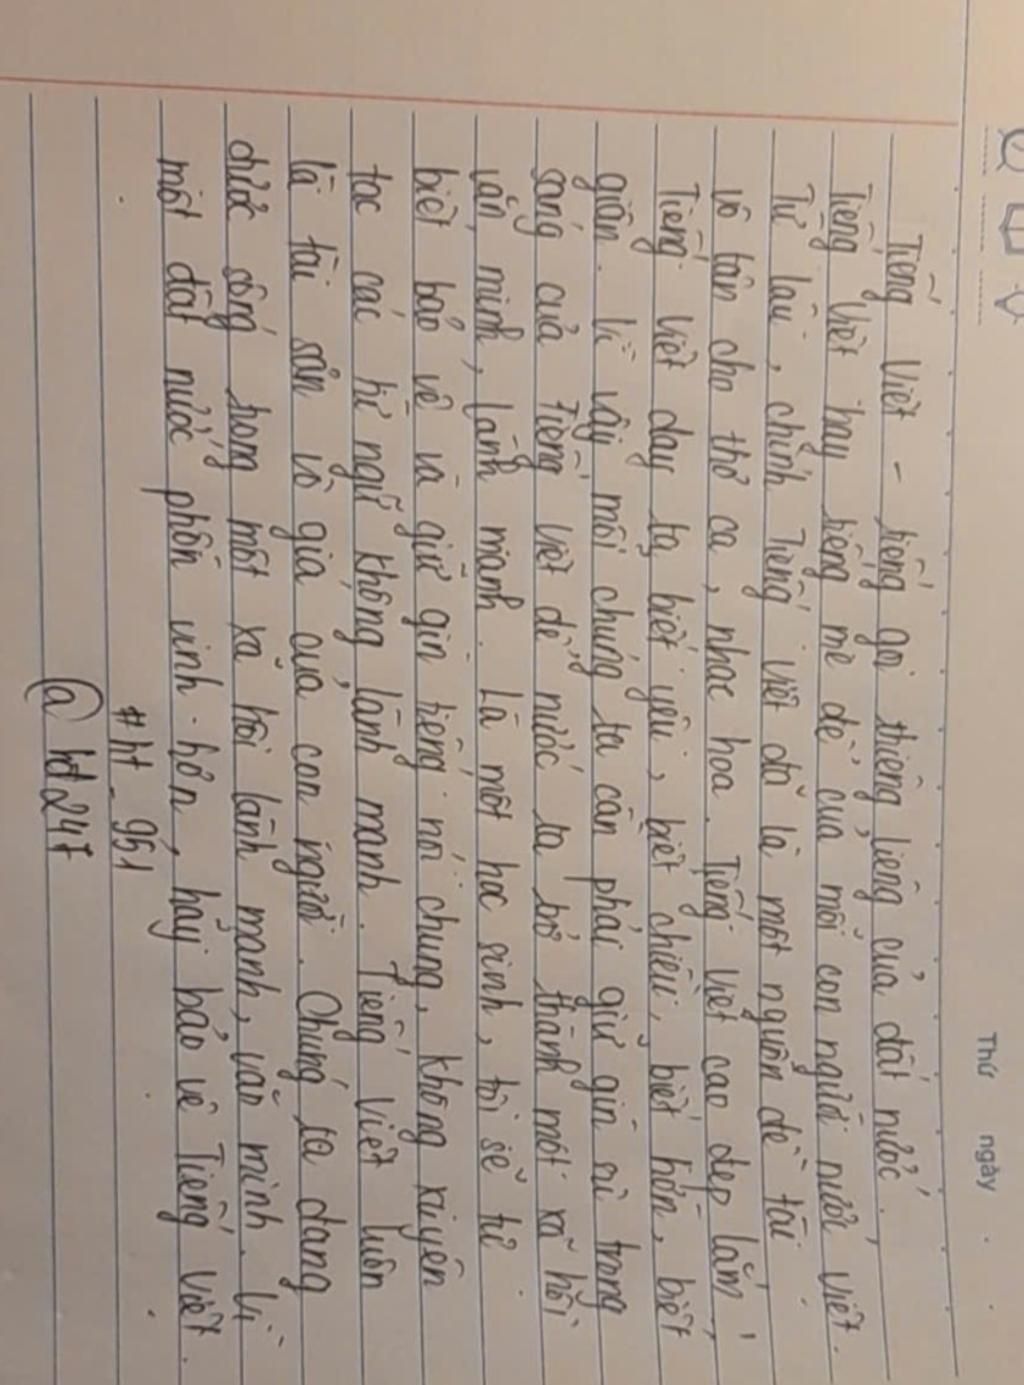 Thứ ngày
Tiếng Việt - tiếng gọi thiêng liêng của đất nước.
Tiếng Việt hay tiếng mẹ đẻ của mỗi con người nước Việt.
Từ lâu, chính Tiếng Việt đã là một nguồn đề tài
vô tận cho thơ ca, nhạc hoạ. Tiếng Việt cao đẹp lắm,
Tiếng Việt dạy ta biết yêu, biết chiều, biết hờn, biết
giận. Vì vậy mỗi chúng ta cần phải giữ gìn sự trong
sáng của tiếng Việt để nước ta trở thành một xã hội
văn minh, lành mạnh. Là một học sinh, tôi sẽ tự
biết bảo vệ và giữ gìn tiếng nói chung, không xuyên
tạc các từ ngữ không lành mạnh. Tiếng Việt luôn
là tài sản vô giá của con người. Chúng ta đang
được sống trong một xã hội lành mạnh, văn minh. Vì
một đất nước phồn vinh hơn, hãy bảo vệ Tiếng Việt.
#ht-951
@hd247